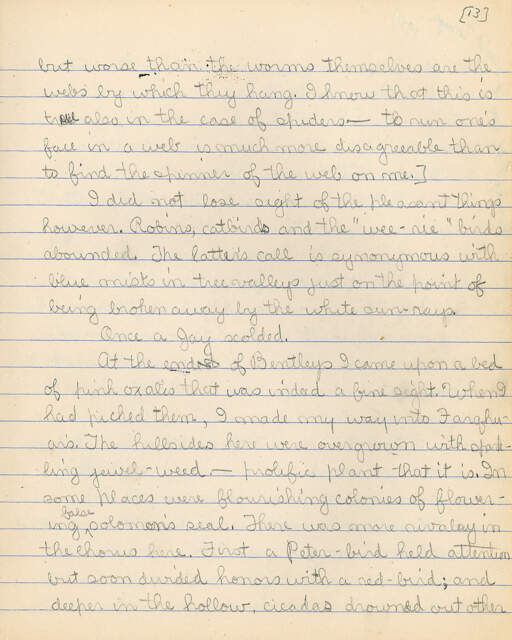 [13]
but worse than the worms themselves are the
webs by which they hang. I know that this is
true also in the case of spiders — to run one's
face in a web is much more disagreeable than
to find the spinner of the web on me.]
I did not lose sight of the pleasant things
however. Robins, catbirds and the "wee-nie" birds
abounded. The latter's call is synonymous with
blue mists in tree valleys just on the point of
being broken away by the white sun-rays.
Once a Jay scolded.
At the end of Bentleys I came upon a bed
of pink oxalis that was indeed a fine sight. When I
had picked them, I made my way into Farquhu-
ar's. The hillsides here were overgrown with spark-
ling jewel-weed — prolific plant that it is. In
some places were flourishing colonies of flower-
ing false solomon's seal. There was more rivalry in
the chorus here. First a Peter-bird held attention
but soon divided honors with a red-bird; and
deeper in the hollow, cicadas drowned out other